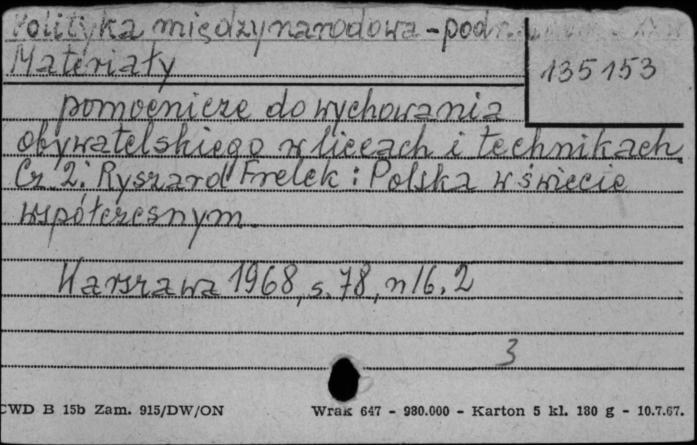 Polityka międzynarodowa - podr.
Materiały
135153
pomocnicze do wychowania
obywatelskiego w liceach i technikach.
Cz. 2: Ryszard Frelek: Polska w świecie
współczesnym.
Warszawa 1968, s. 78, nlb. 2
3
CWD B 15b Zam. 915/DW/ON
Wrak 647 - 980.000 - Karton 5 kl. 180 g - 10.7.67.